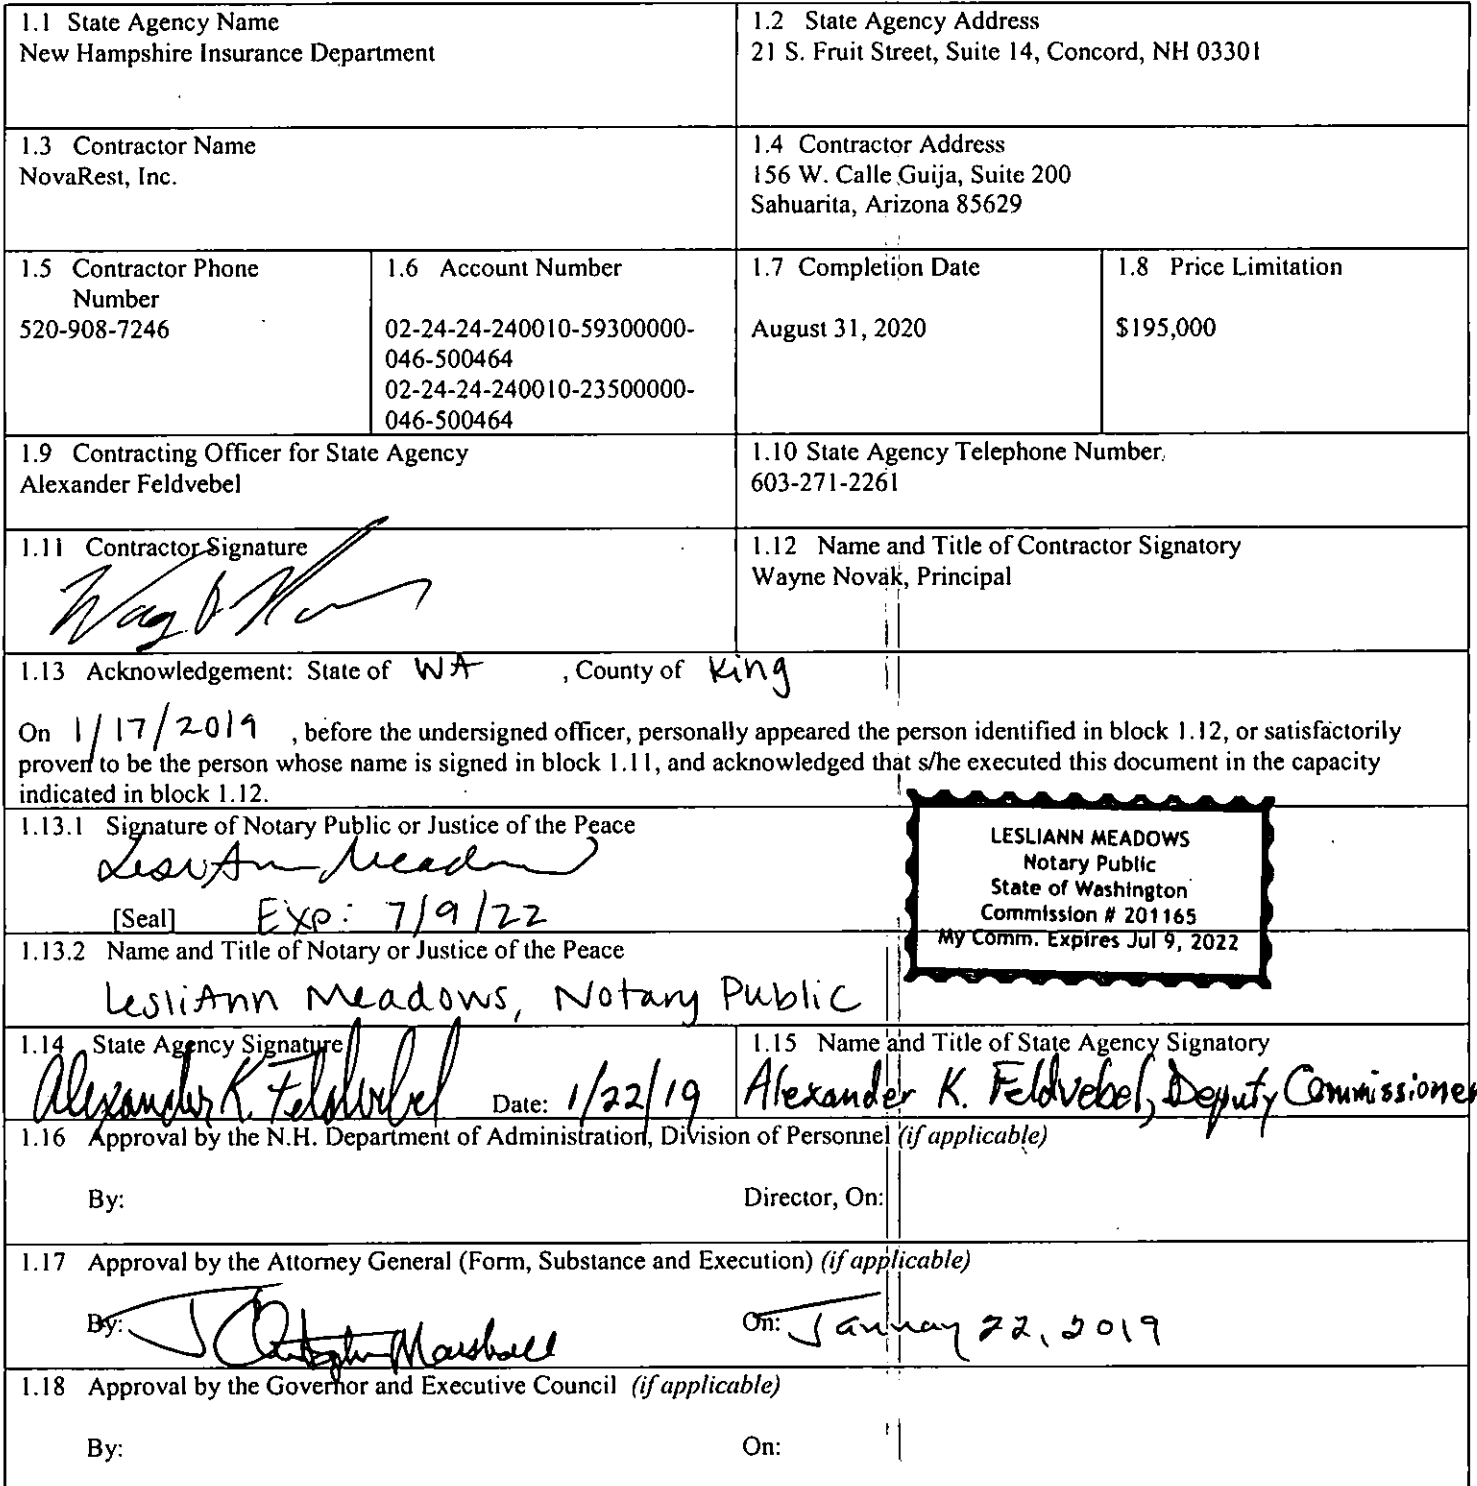 1.1 State Agency Name
New Hampshire Insurance Department
1.2 State Agency Address
21 S. Fruit Street, Suite 14, Concord, NH 03301
1.3 Contractor Name
NovaRest, Inc.
1.4 Contractor Address
156 W. Calle Guija, Suite 200
Sahuarita, Arizona 85629
1.5 Contractor Phone
Number
520-908-7246
1.6 Account Number
02-24-24-240010-59300000-
046-500464
02-24-24-240010-23500000-
046-500464
1.7 Completion Date
August 31, 2020
1.8 Price Limitation
$195,000
1.9 Contracting Officer for State Agency
Alexander Feldvebel
1.10 State Agency Telephone Number
603-271-2261
1.11 Contractor Signature
1.12 Name and Title of Contractor Signatory
Wayne Novak, Principal
1.13 Acknowledgement: State of WA , County of King
On 1/17/2019 , before the undersigned officer, personally appeared the person identified in block 1.12, or satisfactorily
proven to be the person whose name is signed in block 1.11, and acknowledged that s/he executed this document in the capacity
indicated in block 1.12.
1.13.1 Signature of Notary Public or Justice of the Peace
LesliAnn Meadows
[Seal] Exp: 7/9/22
LESLIANN MEADOWS
Notary Public
State of Washington
Commission # 201165
My Comm. Expires Jul 9, 2022
1.13.2 Name and Title of Notary or Justice of the Peace
LesliAnn Meadows, Notary Public
1.14 State Agency Signature
Alexander K. Feldvebel Date: 1/22/19
1.15 Name and Title of State Agency Signatory
Alexander K. Feldvebel, Deputy Commissioner
1.16 Approval by the N.H. Department of Administration, Division of Personnel (if applicable)
By: Director, On:
1.17 Approval by the Attorney General (Form, Substance and Execution) (if applicable)
By: J Christopher Marshall On: January 22, 2019
1.18 Approval by the Governor and Executive Council (if applicable)
By: On: